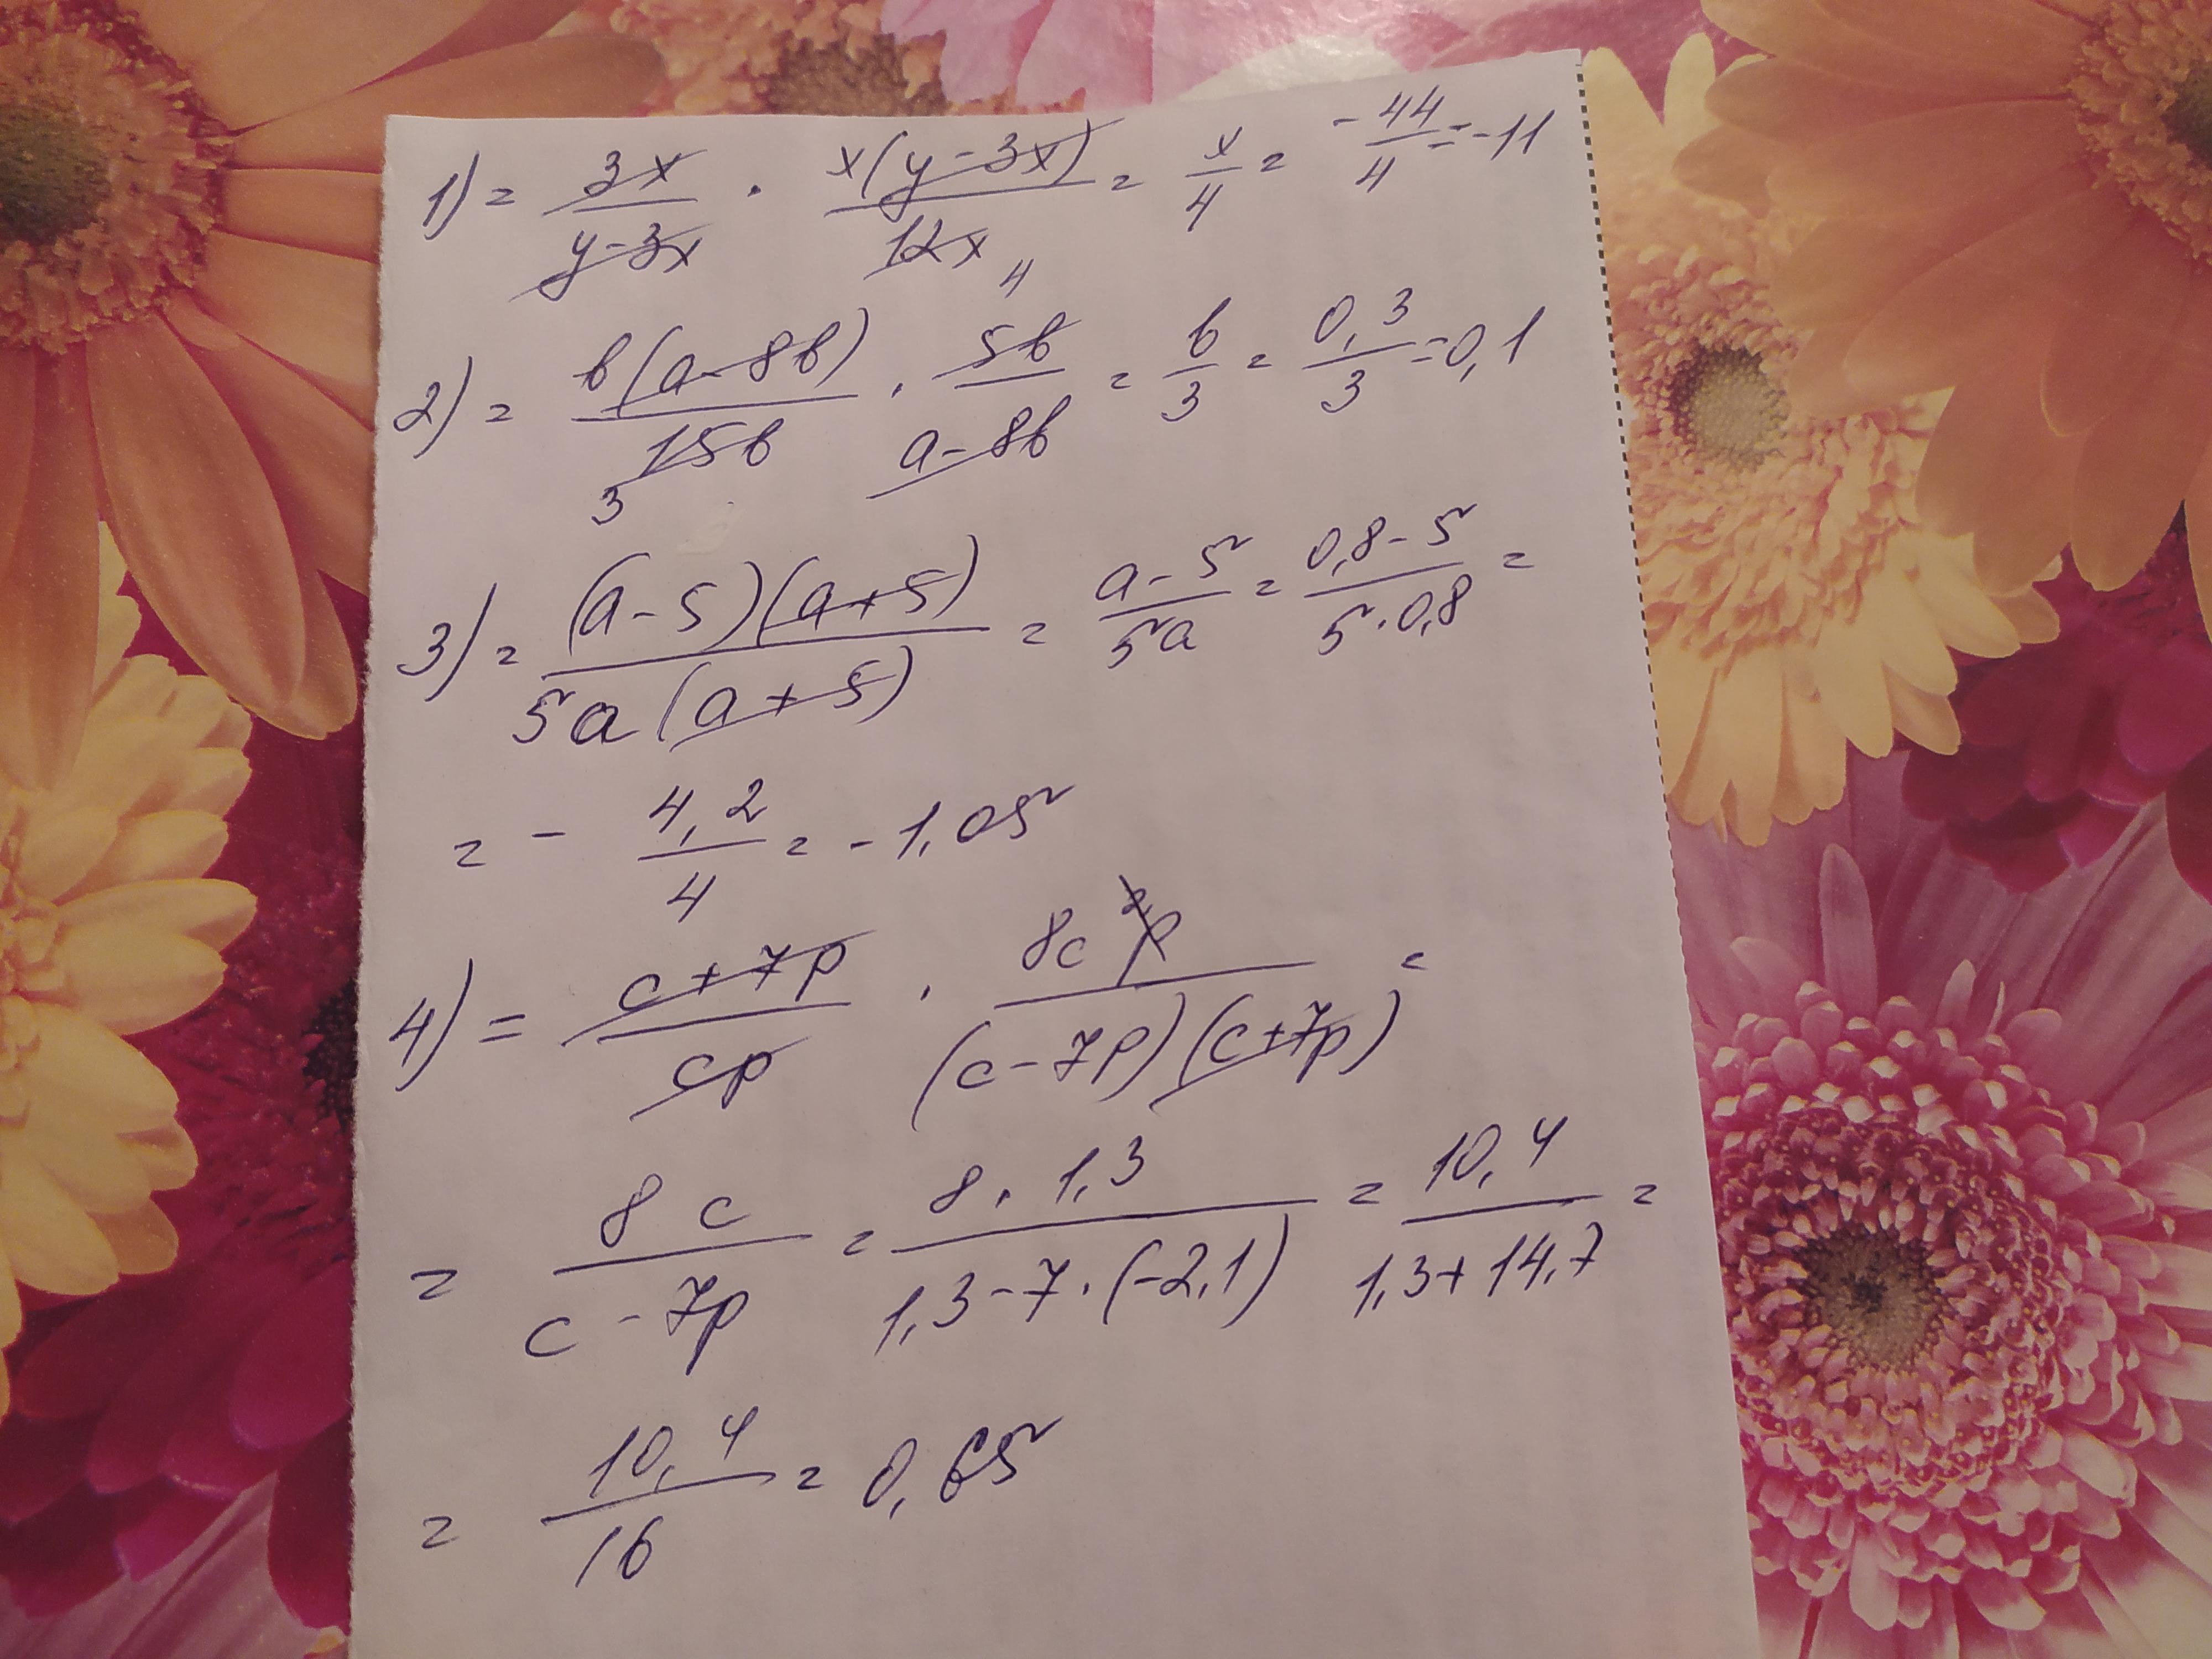 1) = 3x/(y-3x) · x(y-3x)/12x 4 = x/4 = -44/4 = -11
2) = b(a-8b)/15b 3 · 5b/(a-8b) = b/3 = 0,3/3 = 0,1
3) = (a-5)(a+5)/5a(a+5) = (a-5)/5a = (0,8-5)/(5·0,8) =
= - 4,2/4 = -1,05
4) = (c+7p)/cp · 8c²p/(c-7p)(c+7p) =
= 8c/(c-7p) = 8·1,3/(1,3-7·(-2,1)) = 10,4/(1,3+14,7) =
= 10,4/16 = 0,65